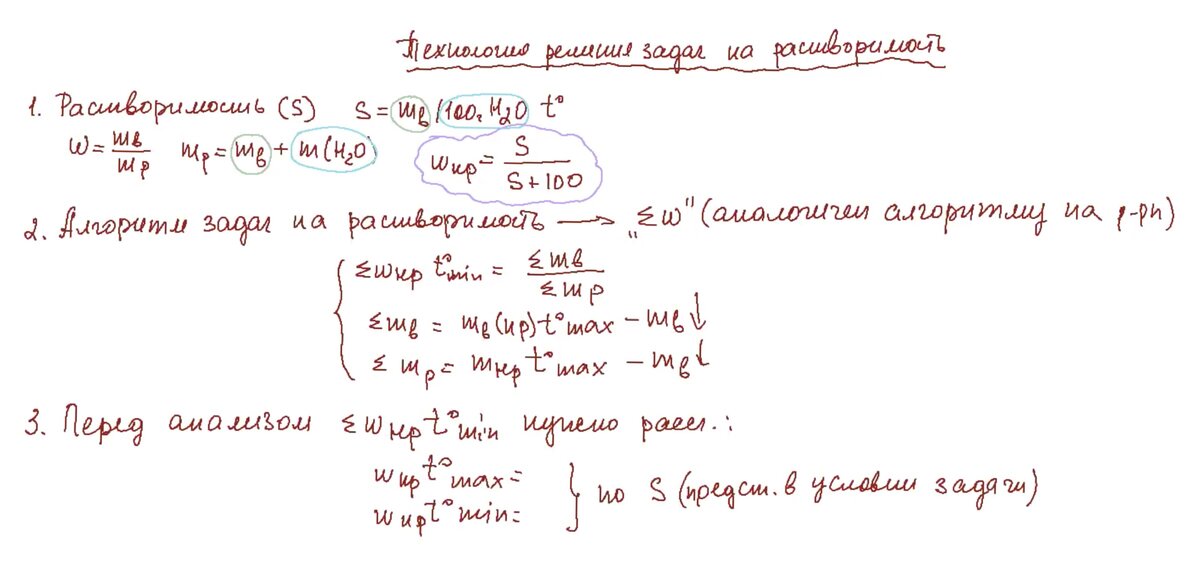 Технология решения задач на растворимость
1. Растворимость (S) S = mв / 100г H2O t°
ω = mв/mр mр = mв + m(H2O) ωнр = S/(S+100)
2. Алгоритм задач на растворимость → „Σω" (аналогичен алгоритму на р-рн)
Σωнр t°min = Σmв/Σmр
Σmв = mв(нр) t°max − mв↓
Σmр = mнр t°max − mв↓
3. Перед анализом Σωнр t°min нужно расс.:
ωнр t°max =
ωнр t°min = } по S (предст. в условии задачи)